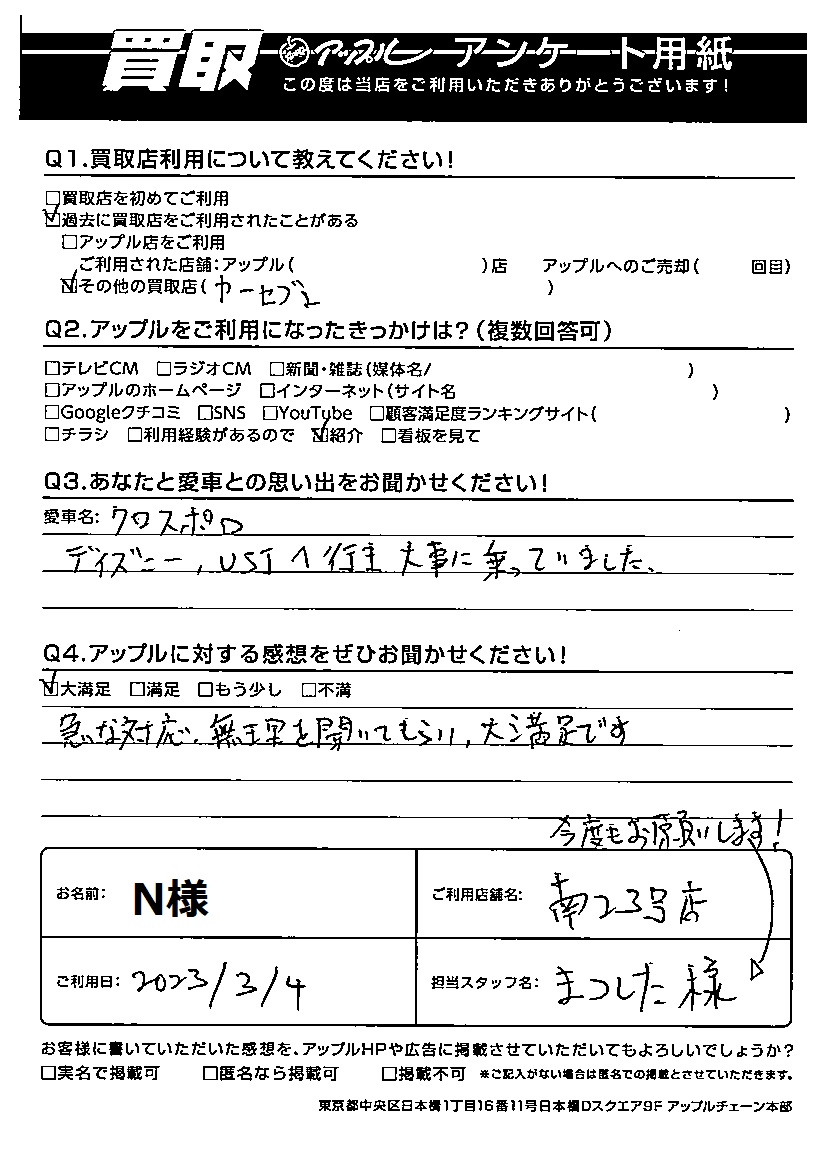 買取 アップル アンケート用紙
この度は当店をご利用いただきありがとうございます!
Q1.買取店利用について教えてください!
□買取店を初めてご利用
☑過去に買取店をご利用されたことがある
□アップル店をご利用
ご利用された店舗:アップル( )店 アップルへのご売却( 回目)
☑その他の買取店(カーセブン )
Q2.アップルをご利用になったきっかけは?(複数回答可)
□テレビCM □ラジオCM □新聞・雑誌(媒体名/ )
□アップルのホームページ □インターネット(サイト名 )
□Googleクチコミ □SNS □YouTube □顧客満足度ランキングサイト( )
□チラシ □利用経験があるので ☑紹介 □看板を見て
Q3.あなたと愛車との思い出をお聞かせください!
愛車名: クロスポロ
ディズニー,USJへ行き 大事に乗っていました、
Q4.アップルに対する感想をぜひお聞かせください!
☑大満足 □満足 □もう少し □不満
急な対応、無理を聞いてもらい,大満足です
今度もお願いします!
お名前: N様
ご利用店舗名: 南23号店
ご利用日: 2023/3/4
担当スタッフ名: まつした様
お客様に書いていただいた感想を、アップルHPや広告に掲載させていただいてもよろしいでしょうか?
□実名で掲載可 □匿名なら掲載可 □掲載不可 ※ご記入がない場合は匿名での掲載とさせていただきます。
東京都中央区日本橋1丁目16番11号日本橋Dスクエア9F アップルチェーン本部